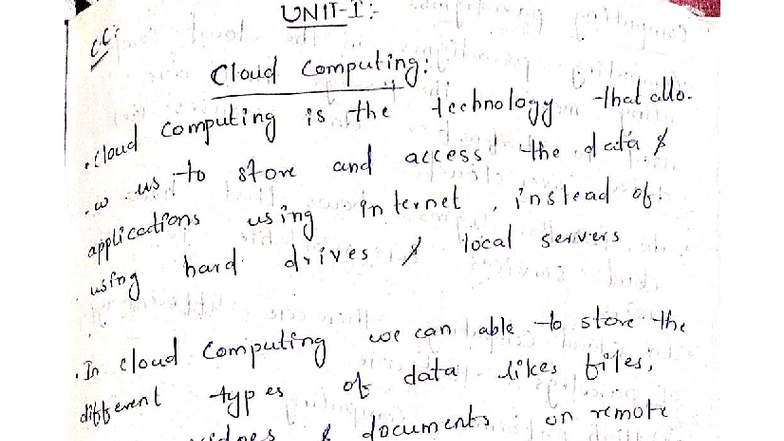 UNIT-I:-
C.C:-
Cloud Computing:
.cloud computing is the technology that allo-
.w us to store and access the data &
applications using internet, instead of
using hard drives & local servers
.In cloud computing we can able to store the
different types of data likes files,
& documents on remote